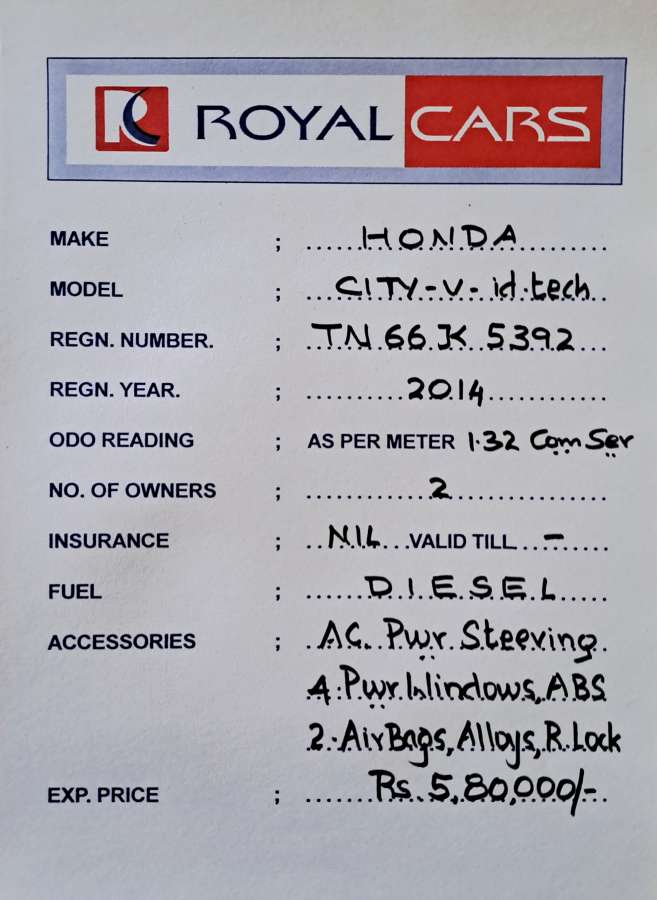 R ROYAL CARS
MAKE ; HONDA
MODEL ; CITY-V-id.tech
REGN. NUMBER. ; TN 66 K 5392
REGN. YEAR. ; 2014
ODO READING ; AS PER METER 1.32 Com Ser
NO. OF OWNERS ; 2
INSURANCE ; NIL VALID TILL -
FUEL ; DIESEL
ACCESSORIES ; AC. Pwr. Steering
4. Pwr Windows, ABS
2. Air Bags, Alloys, R. Lock
EXP. PRICE ; Rs. 5,80,000/-